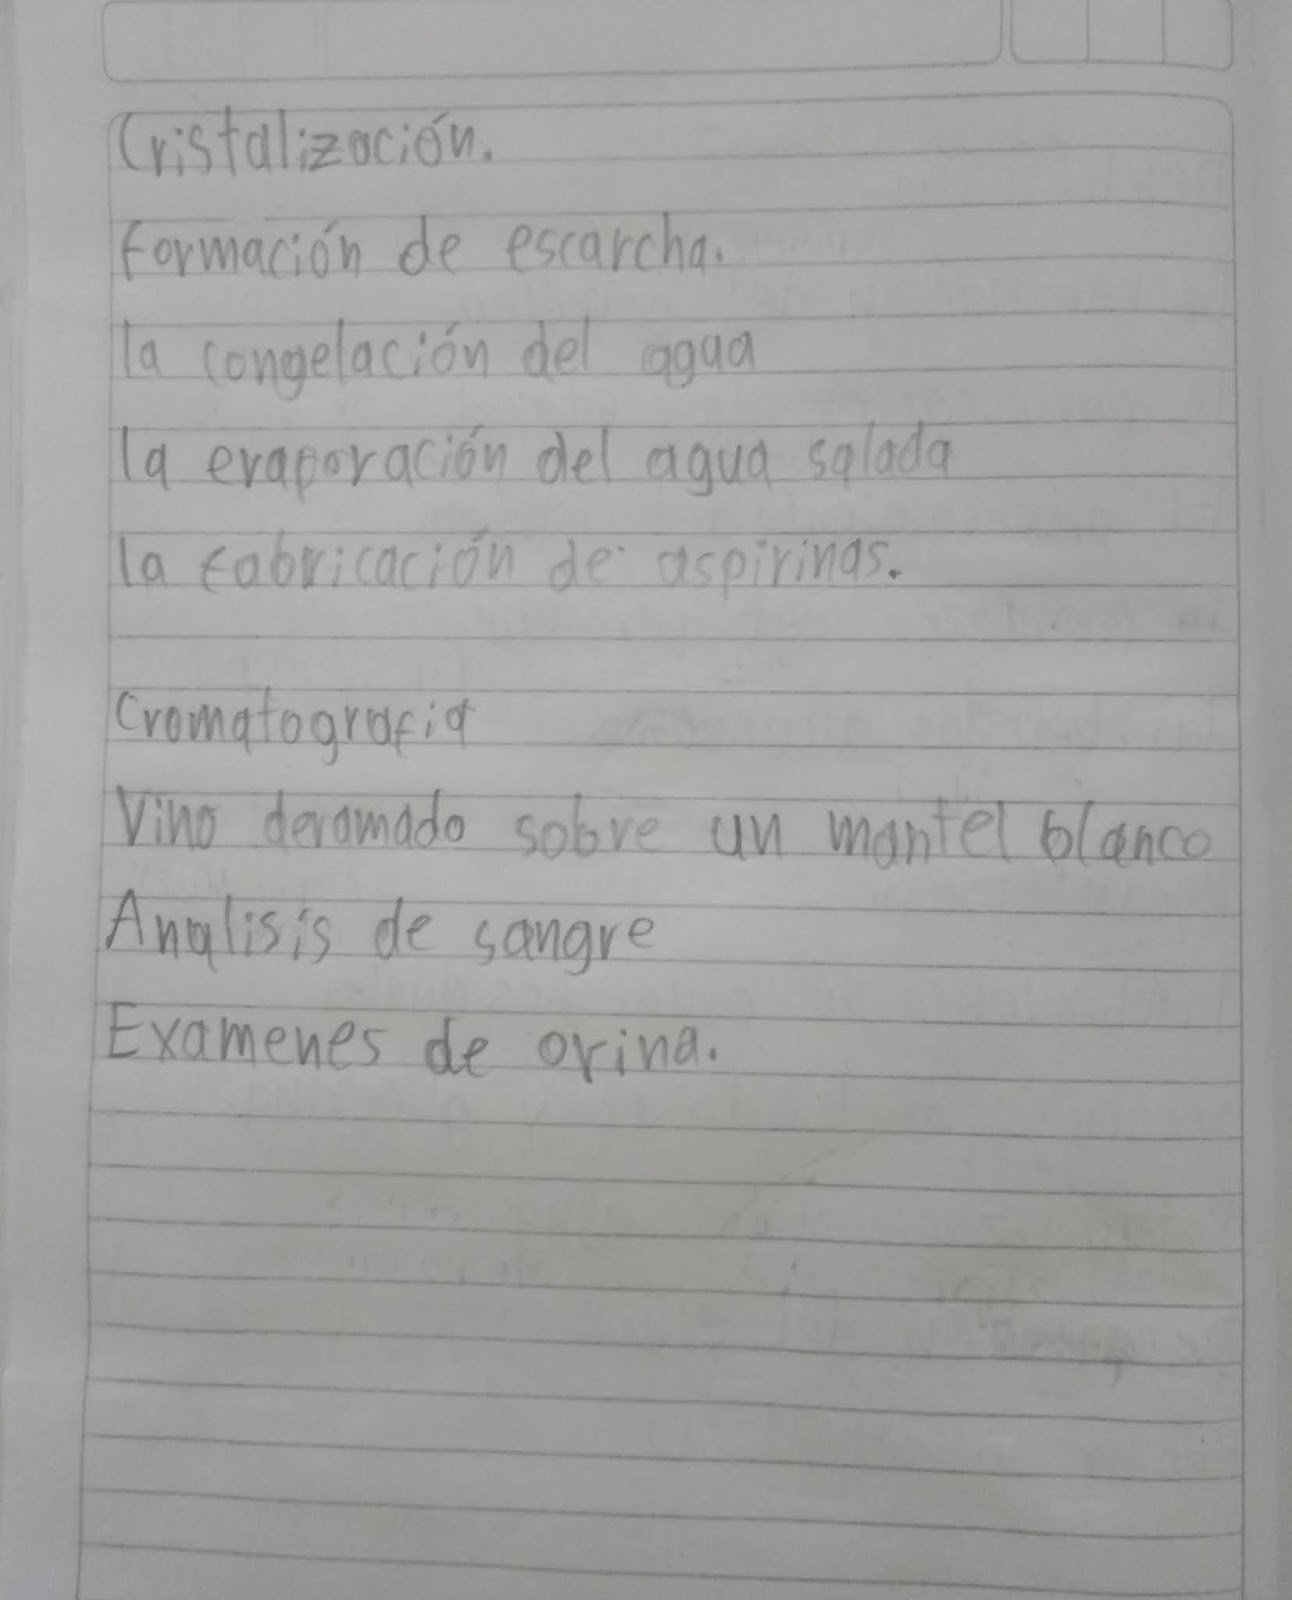 Cristalización.
formación de escarcha.
la congelación del agua
la evaporación del agua salada
la fabricación de aspirinas.
Cromatografia
Vino deramado sobre un mantel blanco
Analisis de sangre
Examenes de orina.